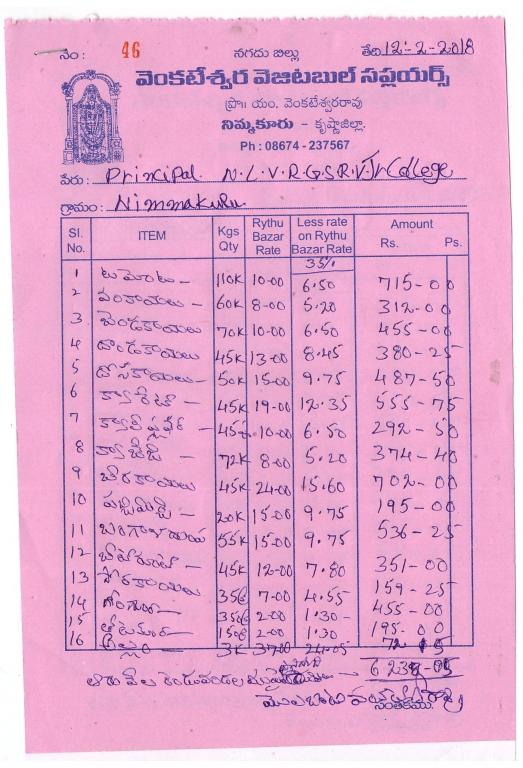 నం: 46 నగదు బిల్లు తేది 12-2-2018
వెంకటేశ్వర వెజిటబుల్ సప్లయర్స్
ప్రొ॥ యం. వెంకటేశ్వరరావు
నిమ్మకూరు - కృష్ణాజిల్లా.
Ph : 08674 - 237567
పేరు: Principal. N.L.V.R.G.S.R.V.Jr College
గ్రామం: Nimmakuru
Sl. No. ITEM Kgs Qty Rythu Bazar Rate Less rate on Rythu Bazar Rate Amount Rs. Ps.
35%
1 టమోటా - 110K 10-00 6.50 715-00
2 వంకాయలు - 60K 8-00 5.20 312-00
3 బెండకాయలు 70K 10-00 6.50 455-00
4 దొండకాయలు 45K 13-00 8.45 380-25
5 దోసకాయలు - 50K 15-00 9.75 487-50
6 క్యారెట్ - 45K 19-00 12.35 555-75
7 క్యాలీఫ్లవర్ - 45K 10-00 6.50 292-50
8 క్యాబేజి - 72K 8-00 5.20 374-40
9 బీరకాయలు 45K 24-00 15.60 702-00
10 పచ్చిమిర్చి - 20K 15-00 9.75 195-00
11 బంగాళదుంప 55K 15-00 9.75 536-25
12 బీట్‌రూట్ - 45K 12-00 7.80 351-00
13 సోరకాయలు 35 7-00 4.55 159-25
14 గోంగూర - 350 2-00 1.30- 455-00
15 తోటకూర - 150 2-00 1.30 195-00
16 అల్లం - 3K 37-00 24.05 72-15
6238-05
సంతకము.